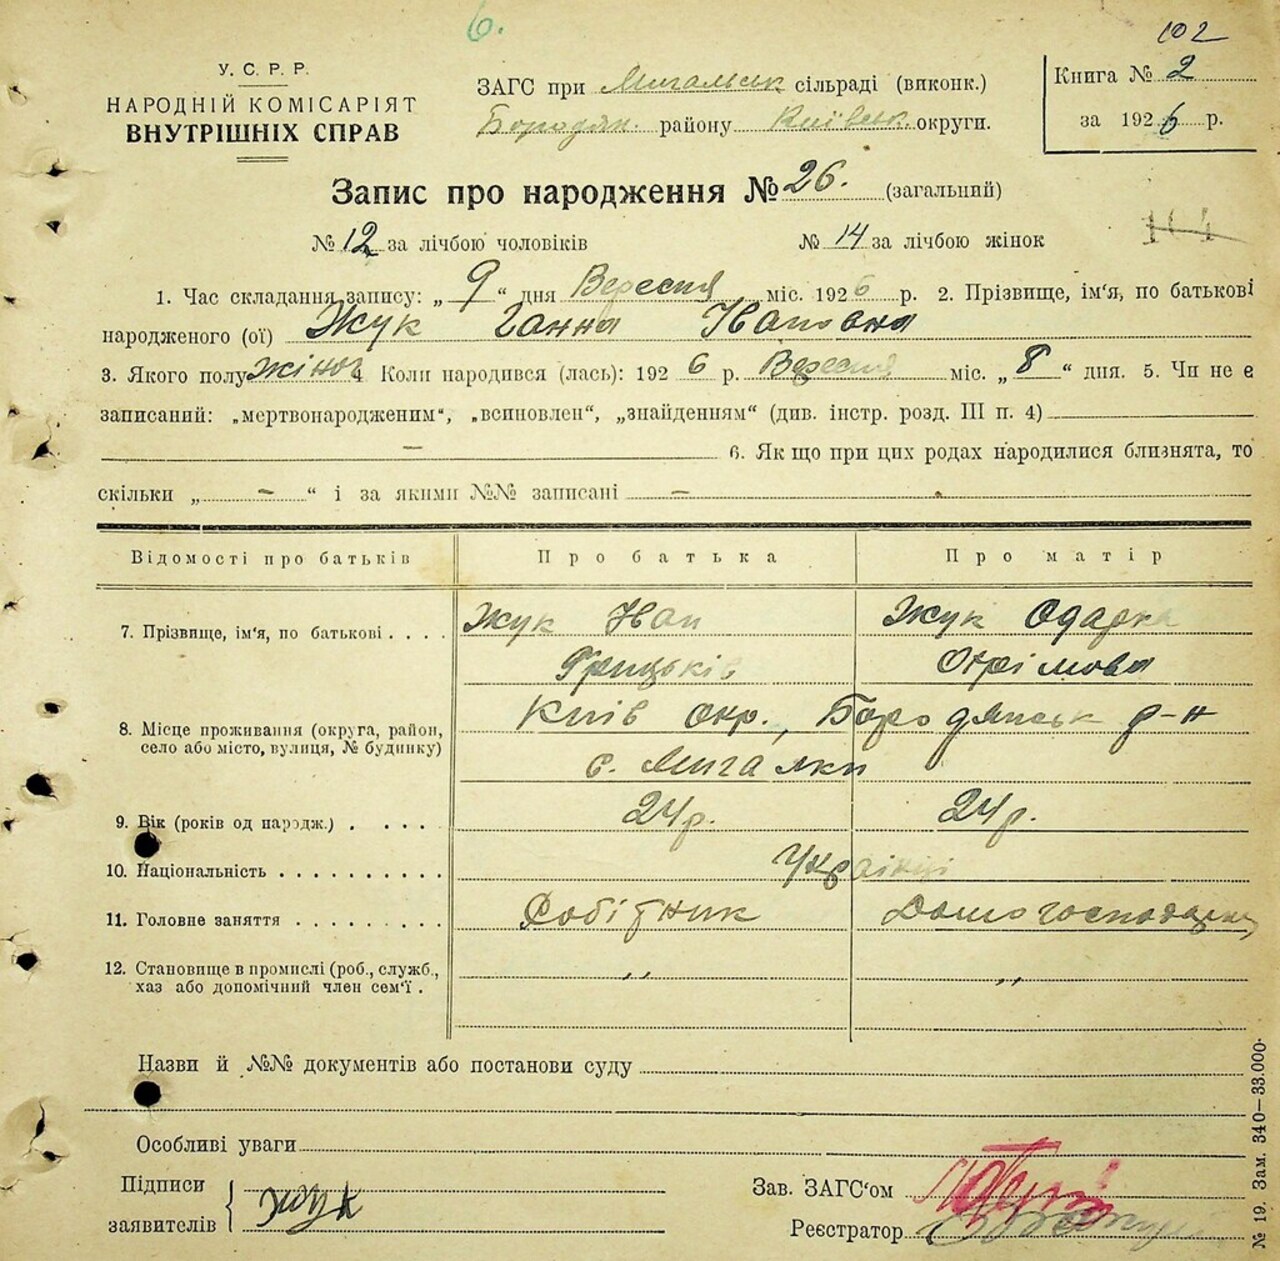 6.
102
У. С. Р. Р.
НАРОДНІЙ КОМІСАРІЯТ
ВНУТРІШНІХ СПРАВ
ЗАГС при Мигальськ сільраді (виконк.)
Бородян. району Київськ. округи.
Книга № 2
за 1926 р.
Запис про народження № 26. (загальний)
№ 12 за лічбою чоловіків № 14 за лічбою жінок
114
1. Час складання запису: „ 9 “ дня Вересня міс. 1926 р. 2. Прізвище, ім'я, по батькові
народженого (ої) Жук Ганна Івановна
3. Якого полу жіноч 4 Коли народився (лась): 1926 р. Вересня міс. „ 8 “ дня. 5. Чи не є
записаний: „мертвонародженим“, „всиновлен“, „знайденням“ (див. інстр. розд. III п. 4)
— 6. Як що при цих родах народилися близнята, то
скільки „ – “ і за якими №№ записані –
Відомості про батьків Про батька Про матір
7. Прізвище, ім‘я, по батькові . . . . Жук Іван Жук Одарка
Грицьків Охрімова
8. Місце проживання (округа, район, село або місто, вулиця, № будинку) Київ окр., Бородянськ р-н
с. Мигалки
9. Вік (років од народж.) . . . . 24 р. 24 р.
10. Національність . . . . . . . . . . Українці
11. Головне заняття . . . . . . . . . Робітник Домогосподарка
12. Становище в промислі (роб., служб., „ „
хаз або допомічний член сем‘ї .
Назви й №№ документів або постанови суду
Особливі уваги
Підписи
заявителів Жук
Зав. ЗАГС‘ом
Реєстратор
№ 19. Зам. 340—33.000.